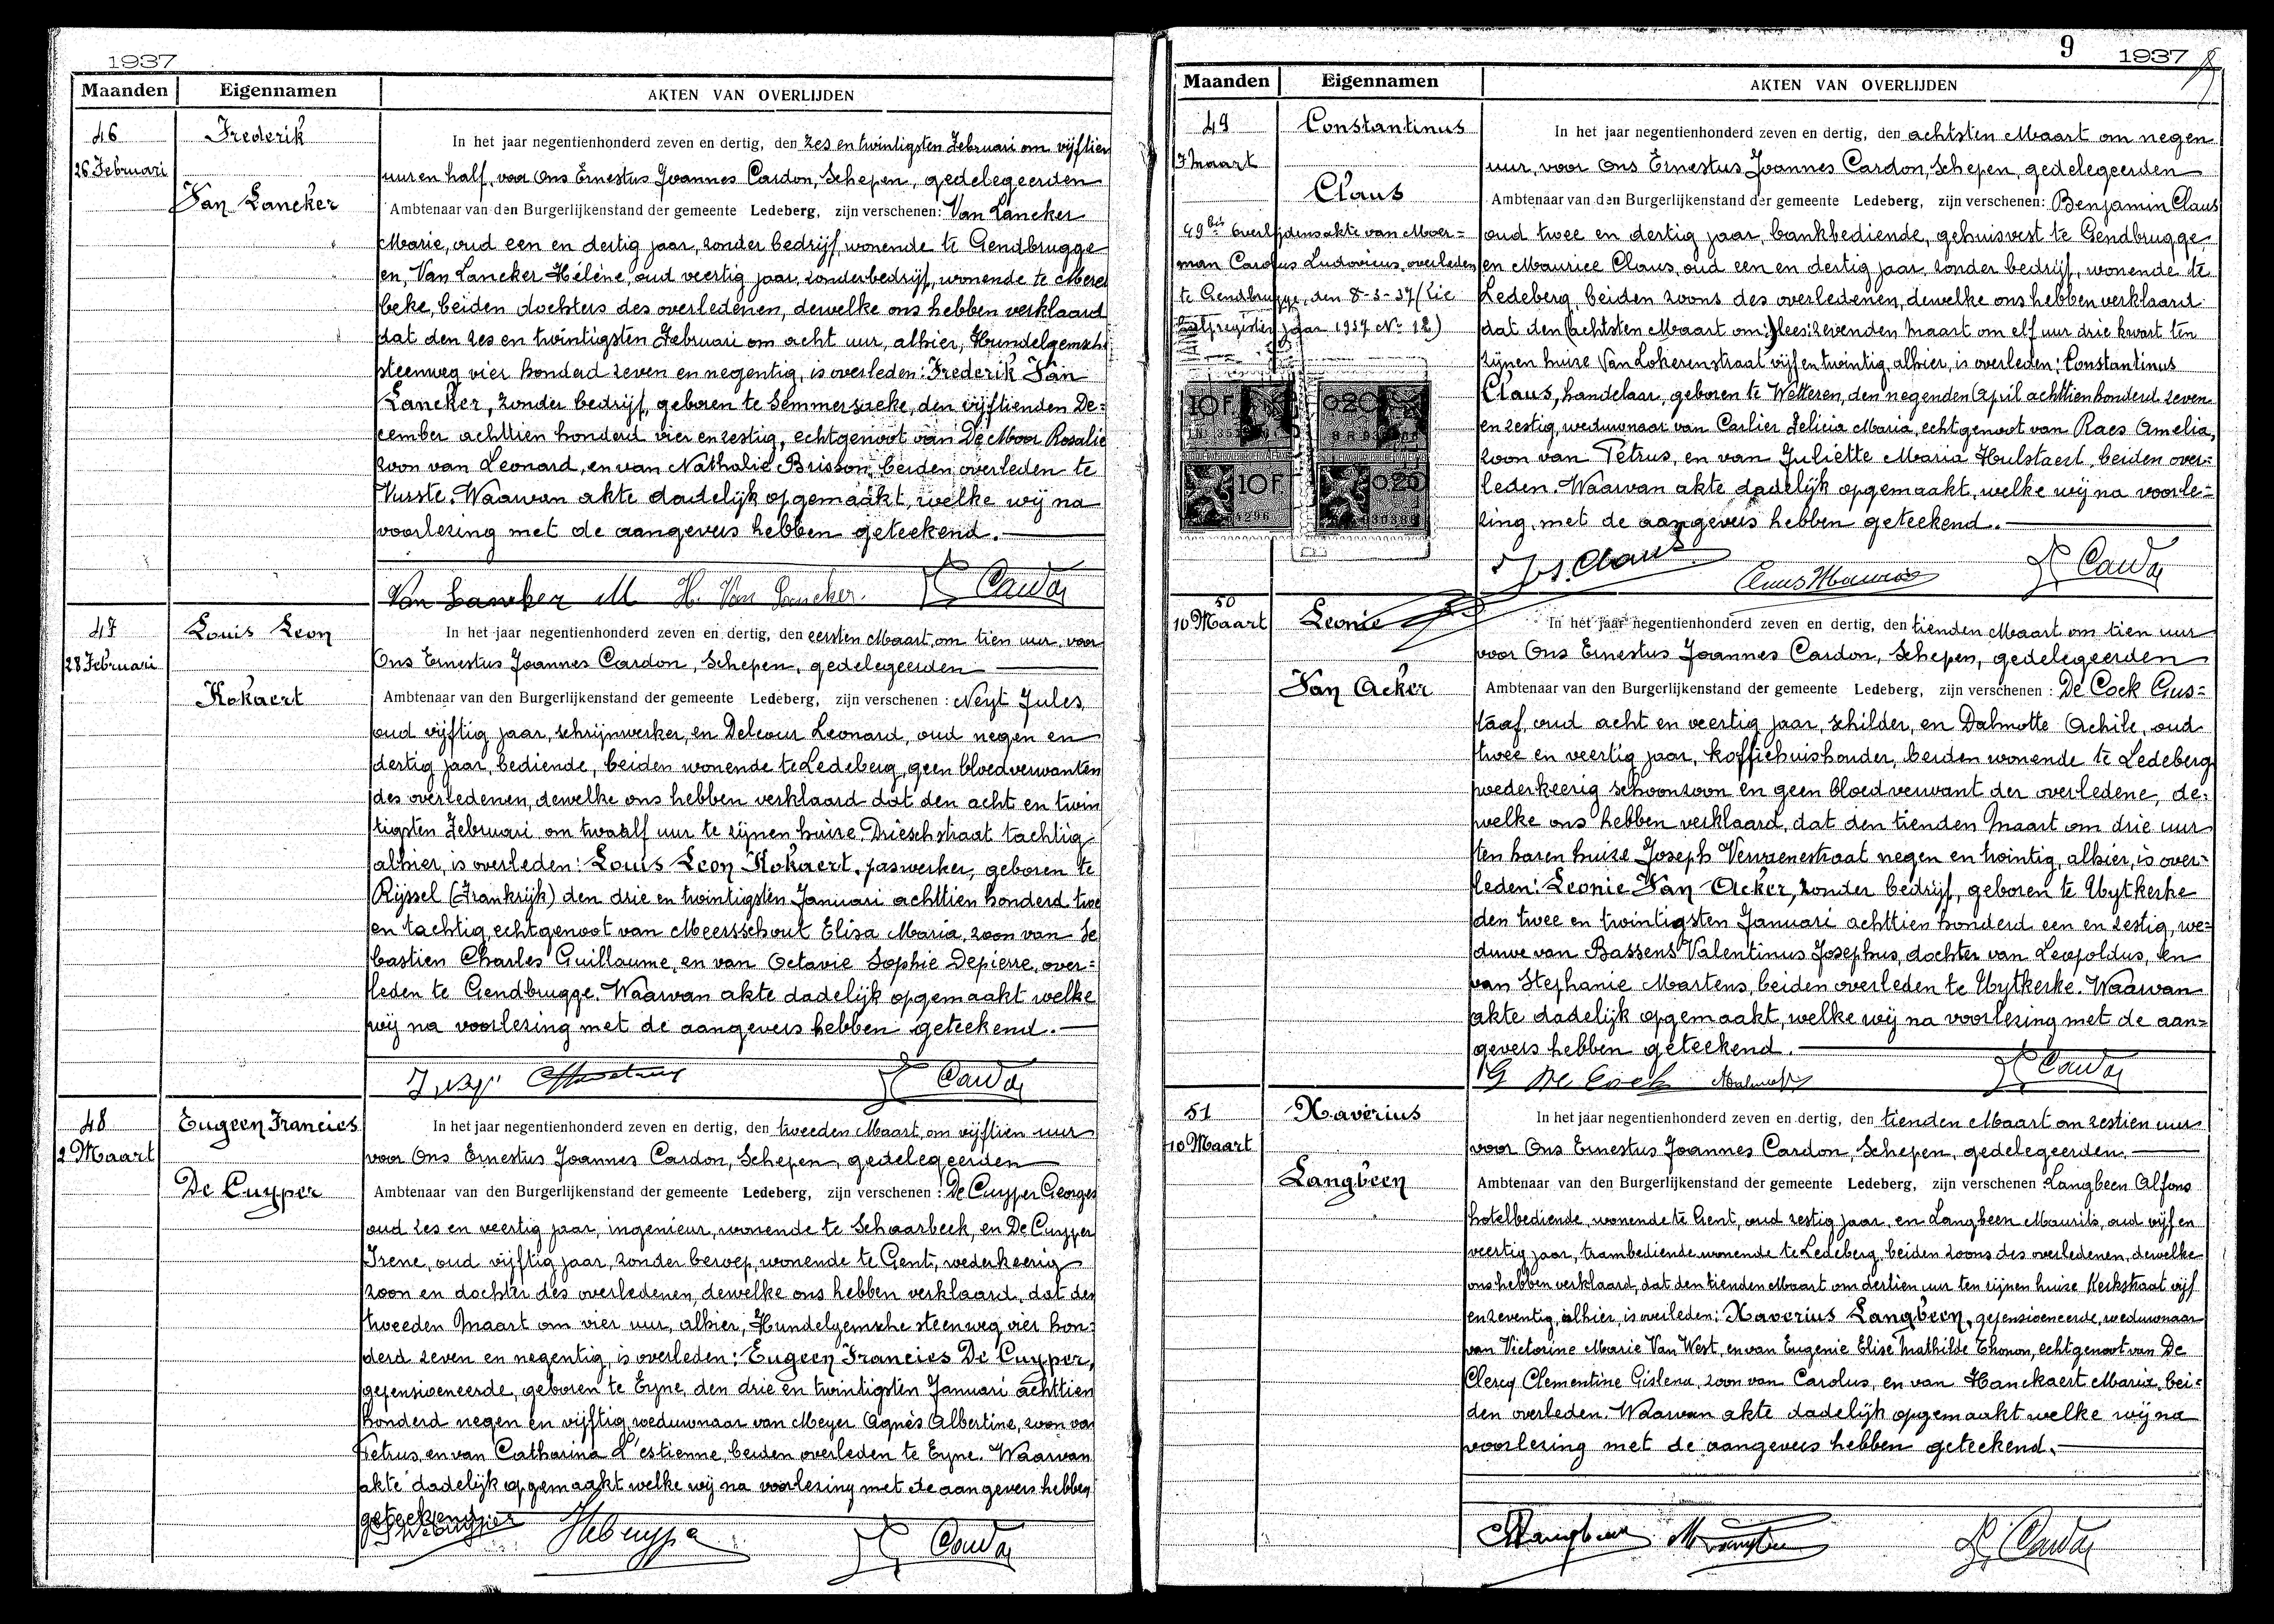 1937
Maanden Eigennamen AKTEN VAN OVERLIJDEN
46
26 Februari
Frederik
Van Lancker
In het jaar negentienhonderd zeven en dertig, den zes en twintigsten Februari om vijftien
uur en half, voor Ons Ernestus Joannes Cardon, Schepen, gedelegeerden
Ambtenaar van den Burgerlijkenstand der gemeente Ledeberg, zijn verschenen: Van Lancker
Marie, oud een en dertig jaar, zonder bedrijf, wonende te Gendbrugge
en, Van Lancker Hélène, oud veertig jaar, zonder bedrijf, wonende te Merel
beke, beiden dochters des overledenen, dewelke ons hebben verklaard
dat den zes en twintigsten Februari om acht uur, alhier, Hundelgemsche
steenweg vier honderd zeven en negentig, is overleden: Frederik Van
Lancker, zonder bedrijf, geboren te Semmersaeke, den vijftienden De=
cember achttien honderd vier en zestig, echtgenoot van De Moor Rosalie
zoon van Leonard, en van Nathalie Brisson, beiden overleden te
Vurste. Waarvan akte dadelijk opgemaakt, welke wij na
voorlezing met de aangevers hebben geteekend.
Van Lancker M H. Van Lancker. Cardon
47
28 Februari
Louis Leon
Kokaert
In het jaar negentienhonderd zeven en dertig, den eersten Maart, om tien uur, voor
Ons Ernestus Joannes Cardon, Schepen, gedelegeerden
Ambtenaar van den Burgerlijkenstand der gemeente Ledeberg, zijn verschenen: Neyt Jules,
oud vijftig jaar, schrijnwerker, en Delcour Leonard, oud negen en
dertig jaar, bediende, beiden wonende te Ledeberg, geen bloedverwanten
des overledenen, dewelke ons hebben verklaard dat den acht en twin
tigsten Februari om twaalf uur te zijnen huize Drieschstraat tachtig
alhier, is overleden: Louis Leon Kokaert, paswerker, geboren te
Rijssel (Frankrijk) den drie en twintigsten Januari achttien honderd twee
en tachtig, echtgenoot van Meersschout Elisa Maria, zoon van Se
bastien Charles Guillaume, en van Octavie Sophie Depierre, over=
leden te Gendbrugge. Waarvan akte dadelijk opgemaakt welke
wij na voorlezing met de aangevers hebben geteekend.
Cardon
48
2 Maart
Eugeen Francies
De Cuyper
In het jaar negentienhonderd zeven en dertig, den tweeden Maart, om vijftien uur
voor Ons Ernestus Joannes Cardon, Schepen, gedelegeerden
Ambtenaar van den Burgerlijkenstand der gemeente Ledeberg, zijn verschenen: De Cuyper Georges
oud zes en veertig jaar, ingenieur, wonende te Schaarbeek, en De Cuyper
Irene, oud vijftig jaar, zonder beroep, wonende te Gent, wederkeerig
zoon en dochter des overledenen, dewelke ons hebben verklaard, dat den
tweeden Maart om vier uur, alhier, Hundelgemsche steenweg vier hon=
derd zeven en negentig, is overleden: Eugeen Francies De Cuyper,
gepensioeneerde, geboren te Eyne, den drie en twintigsten Januari achttien
honderd negen en vijftig, weduwnaar van Meyer Agnès Albertine, zoon van
Petrus, en van Catharina L'estienne, beiden overleden te Eyne. Waarvan
akte dadelijk opgemaakt welke wij na voorlezing met de aangevers hebben
geteekend
Cardon
9 1937
Maanden Eigennamen AKTEN VAN OVERLIJDEN
49
7 Maart
Constantinus
Claus
49bis Overlijdensakte van Moer=
man Carolus Ludovicus, overleden
te Gendbrugge, den 8-3-37 (Zie
register jaar 1937 No 12)
10F. 0.20
10F. 0.20
In het jaar negentienhonderd zeven en dertig, den achtsten Maart om negen
uur, voor Ons Ernestus Joannes Cardon, Schepen, gedelegeerden
Ambtenaar van den Burgerlijkenstand der gemeente Ledeberg, zijn verschenen: Benjamin Claus
oud twee en dertig jaar, bankbediende, gehuisvest te Gendbrugge,
en Maurice Claus, oud een en dertig jaar, zonder bedrijf, wonende te
Ledeberg, beiden zoons des overledenen, dewelke ons hebben verklaard
dat den (achtsten Maart om:) lees: zevenden Maart om elf uur drie kwart ten
zijnen huize Van Lokerenstraat vijf en twintig, alhier, is overleden: Constantinus
Claus, handelaar, geboren te Wetteren, den negenden April achttienhonderd zeven
en zestig, weduwnaar van Carlier Felicia Maria, echtgenoot van Raes Amelia,
zoon van Petrus, en van Juliette Maria Hulstaert, beiden over=
leden. Waarvan akte dadelijk opgemaakt, welke wij na voorle=
zing, met de aangevers hebben geteekend.
Claus Claus Maurice Cardon
50
10 Maart
Leonie
Van Acker
In het jaar negentienhonderd zeven en dertig, den tienden Maart om tien uur
voor Ons Ernestus Joannes Cardon, Schepen, gedelegeerden
Ambtenaar van den Burgerlijkenstand der gemeente Ledeberg, zijn verschenen: De Cock Gus=
taaf, oud acht en veertig jaar, schilder, en Dalmotte Achile, oud
twee en veertig jaar, koffiehuishouder, beiden wonende te Ledeberg
wederkeerig schoonzoon en geen bloedverwant der overledene, de=
welke ons hebben verklaard, dat den tienden Maart om drie uur
ten haren huize Joseph Vervaenestraat negen en twintig, alhier, is over=
leden: Leonie Van Acker, zonder bedrijf, geboren te Uytkerke
den twee en twintigsten Januari achttien honderd een en zestig, we=
duwe van Bassens Valentinus Josephus, dochter van Leopoldus, en
van Stephanie Martens, beiden overleden te Uytkerke. Waarvan
akte dadelijk opgemaakt, welke wij na voorlezing met de aan=
gevers hebben geteekend.
G De Cock Cardon
51
10 Maart
Xaverius
Langbeen
In het jaar negentienhonderd zeven en dertig, den tienden Maart om zestien uur
voor Ons Ernestus Joannes Cardon, Schepen, gedelegeerden.
Ambtenaar van den Burgerlijkenstand der gemeente Ledeberg, zijn verschenen: Langbeen Alfons
hotelbediende, wonende te Gent, oud zestig jaar, en Langbeen Maurits, oud vijf en
veertig jaar, trambediende wonende te Ledeberg, beiden zoons des overledenen, dewelke
ons hebben verklaard, dat den tienden Maart om dertien uur ten zijnen huize Kerkstraat vijf
en zeventig, alhier, is overleden: Xaverius Langbeen, gepensioeneerde, weduwnaar
van Victorine Marie Van West, en van Eugenie Elise Mathilde Thonon, echtgenoot van De
Clercq Clementine Gislena, zoon van Carolus, en van Hanckaert Maria, bei=
den overleden. Waarvan akte dadelijk opgemaakt welke wij na
voorlezing met de aangevers hebben geteekend.
Langbeen Cardon